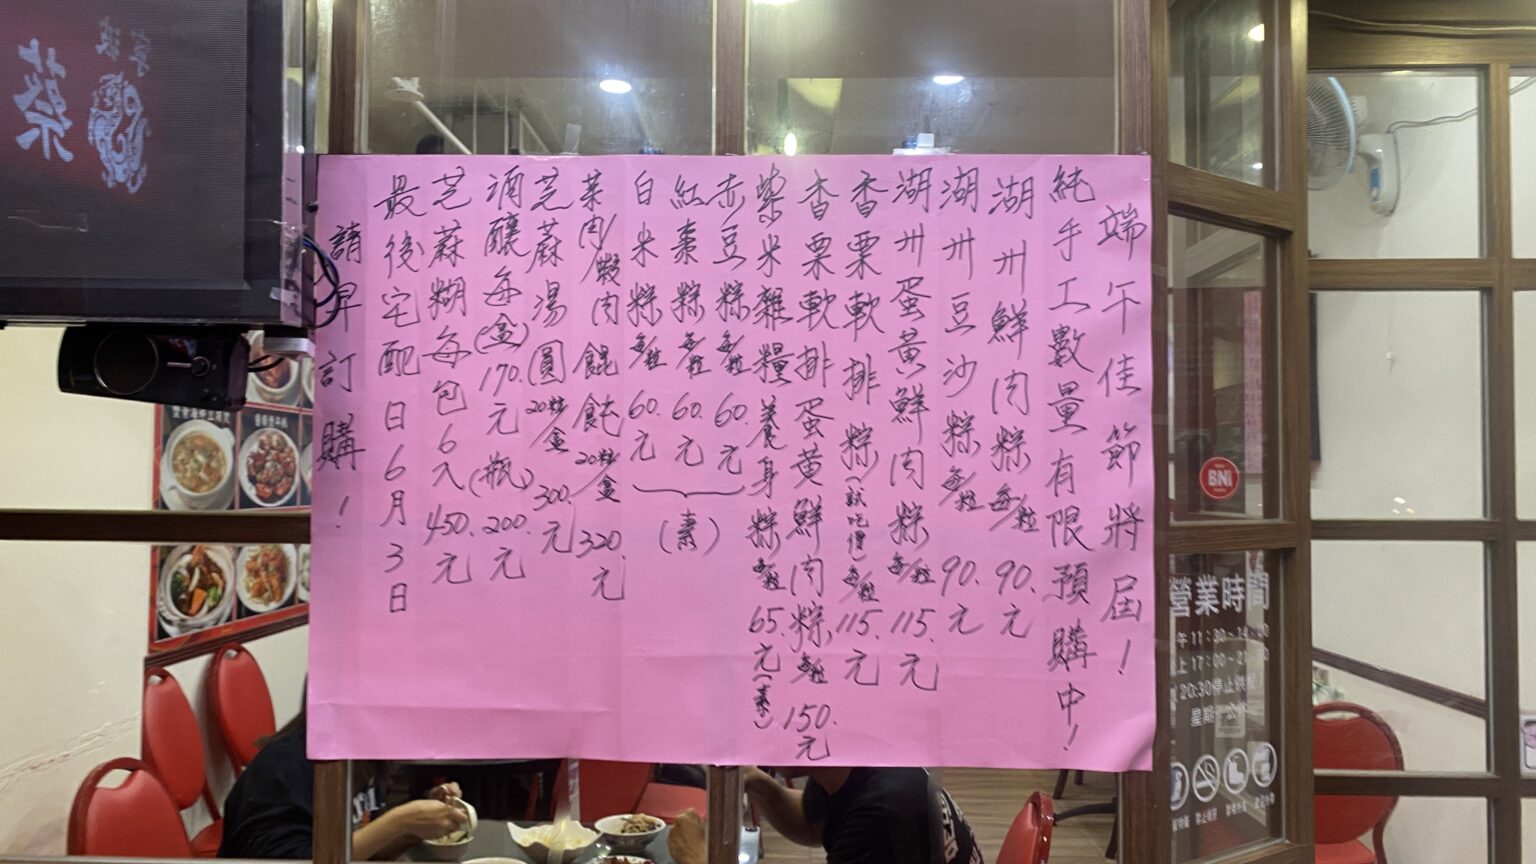 端午佳節將屆！
純手工數量有限預購中！
湖州鮮肉粽每/粒 90.元
湖州豆沙粽每/粒 90.元
湖州蛋黃鮮肉粽每/粒 115.元
香栗軟排粽(試吃價)每/粒 115.元
香栗軟排蛋黃鮮肉粽,每/粒 150.元
紫米雜糧養身粽每/粒 65.元(素)
赤豆粽每/粒 60.元
紅棗粽每/粒 60.元
白米粽每/粒 60.元
(素)
菜肉/蝦肉餛飩20粒/盒 320.元
芝蔴湯圓20粒/盒 300.元
酒釀每(盒)170.元(瓶)200.元
芝蔴糊每包6入450.元
最後宅配日6月3日
請早訂購！
BNI
營業時間
午11:30-14:00
上17:00-2
(20:30停止供
星期 公休